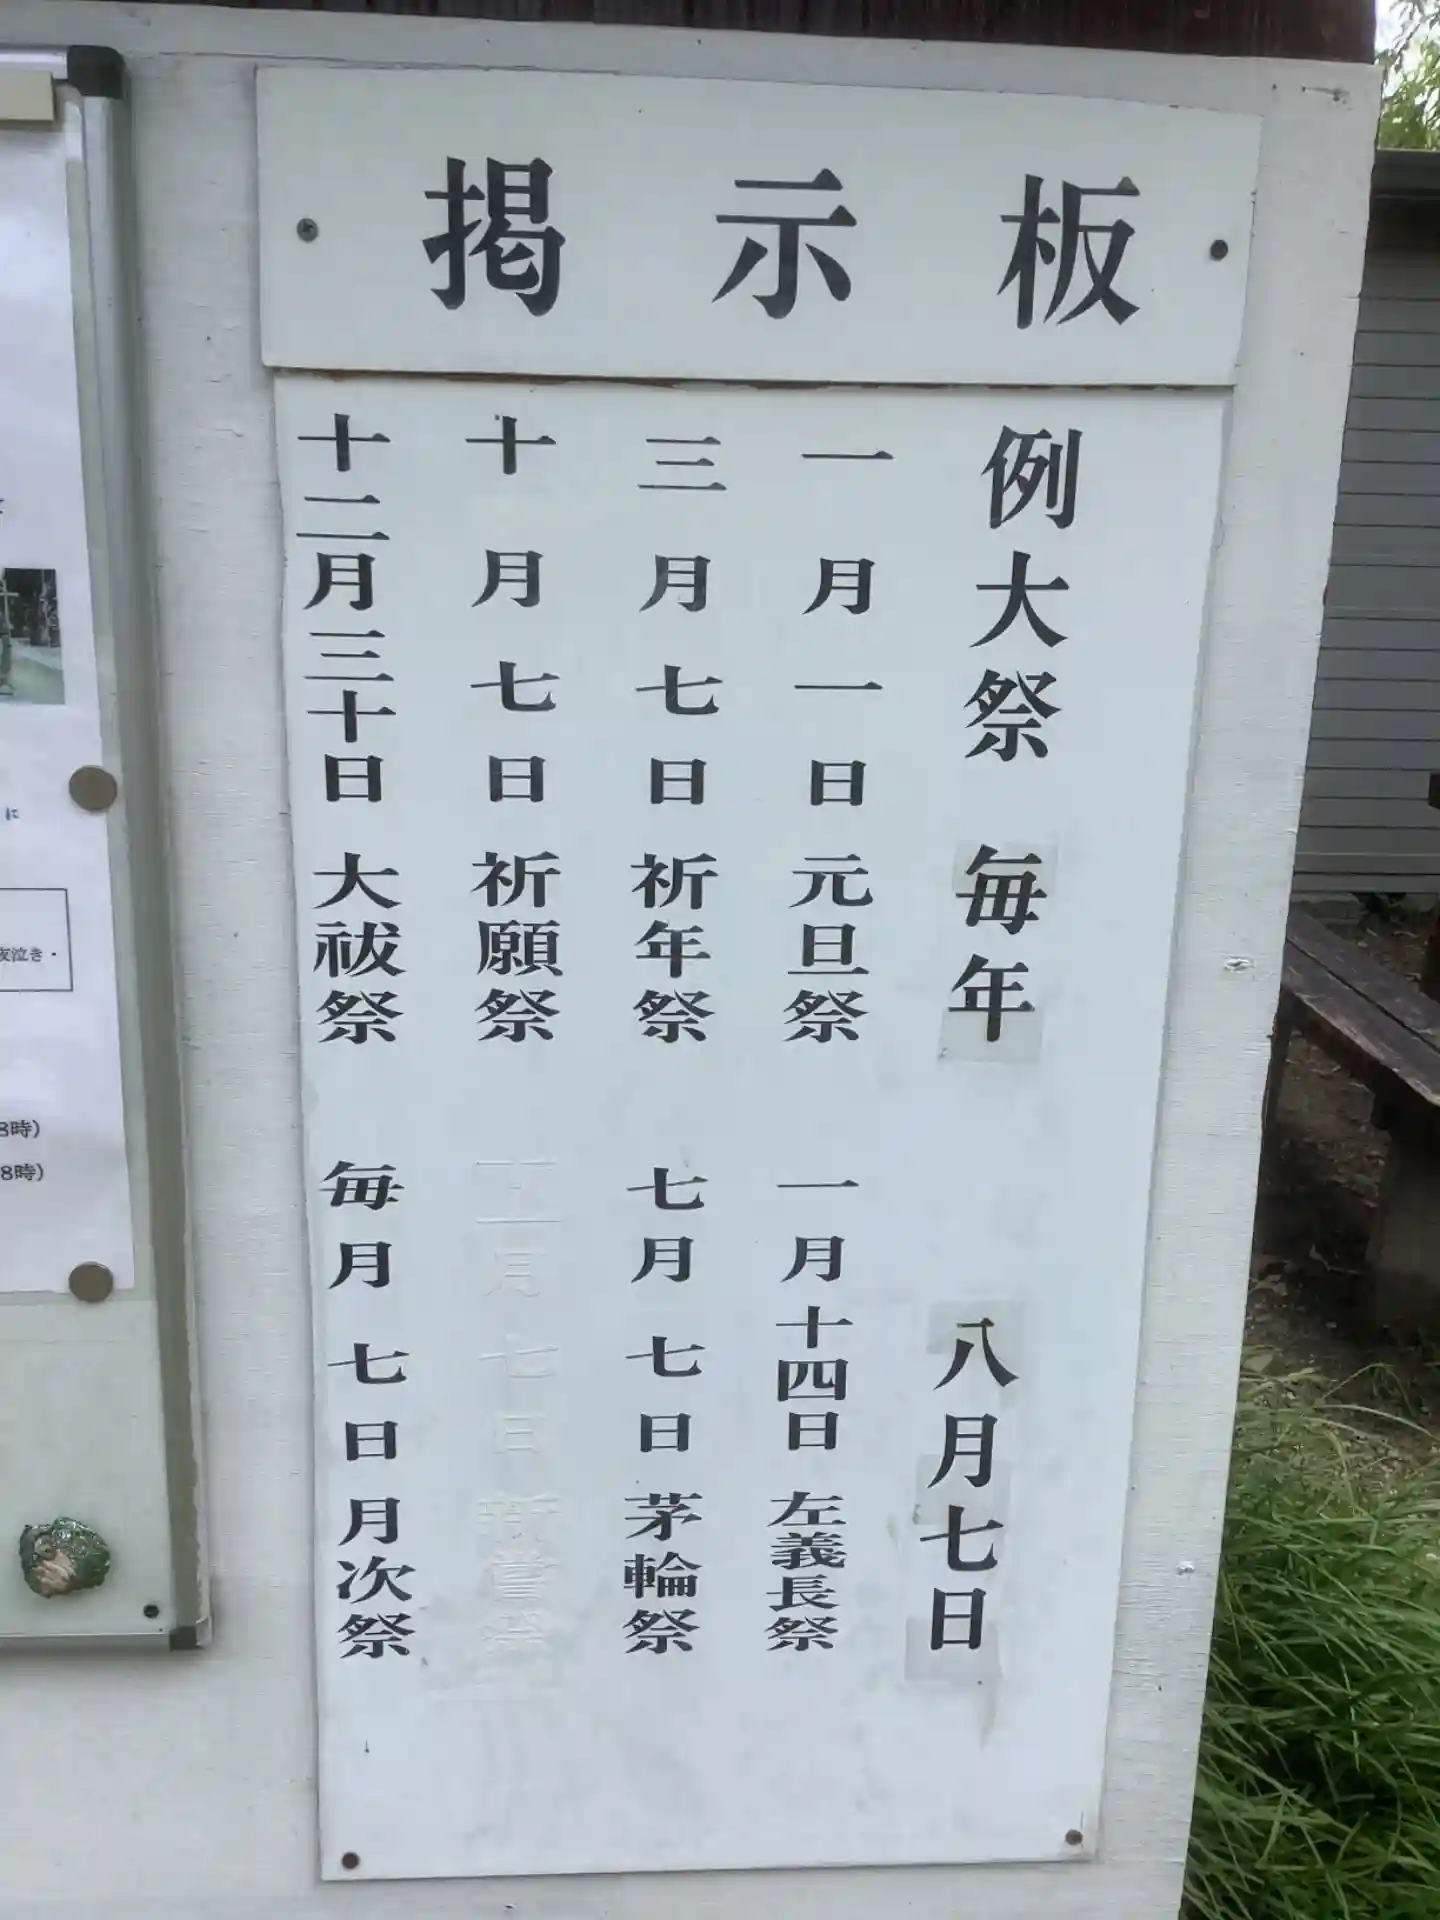 掲示板
例大祭 毎年 八月七日
一月一日 元旦祭 一月十四日 左義長祭
三月七日 祈年祭 七月七日 茅輪祭
十月七日 祈願祭
十二月三十日 大祓祭 毎月七日 月次祭
に
夜泣き・
8時)
8時)